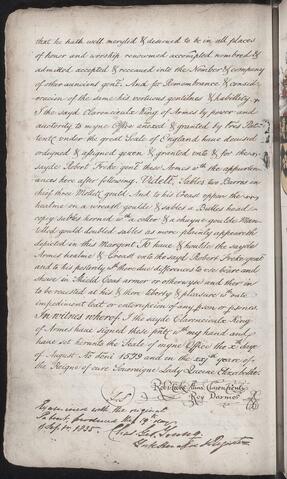 that he hath well meryted & deserved to be in all places
of honor and worship renowned accompted nombred &
admitted accepted & receaved into the Nomber & company
of other auncient gent. And for Remembrance & consid
eracion of the same his vertious gentelnes & habillety,
I the sayd Clarencieulx King of Armes by power and
auctority to myne Office anexed & granted by
tents under the great Seale of England have devised
ordigned & assigned graven & granted unto & for the
sayde Robert Freke gent these Armes wth the apperten
ances here after following. Videlt Sables two Barres in
cheif three Moletts gould. And to his Creast uppon the
healme on a wreath goulde & sables a Bulles head
copey sables horned wth a coller & a chayne gould Man
telled gould doubled sables as more plainly appeareth
depicted in this Margent To have & houlde the sayde
Armes healme & Creast unto the sayd Robert Freke gent
and to his posterity wth there due differences to use bear and
shewe in Shield Coat armor or otherwyse and ther in
to be revested at his & ther liberty & pleasure wthout
impediment lett or enterupcion of any parson or parsons.
In witnes whereof I the sayde Clarencieulx King
of Armes have signed these wth my hand and
have set herunto the Seale of myne Office the
of August Ao Dni 1579 and in the xxjth yeare of
the Reigne of oure Souvereigne Lady Queene Elizabethe
Rob Cooke Alias Clarencieulx
Roy Darmes
LS
Examined with the original
Patent this 19th day
of Sept 1835.
Chas Geo Young
York Herald & Register